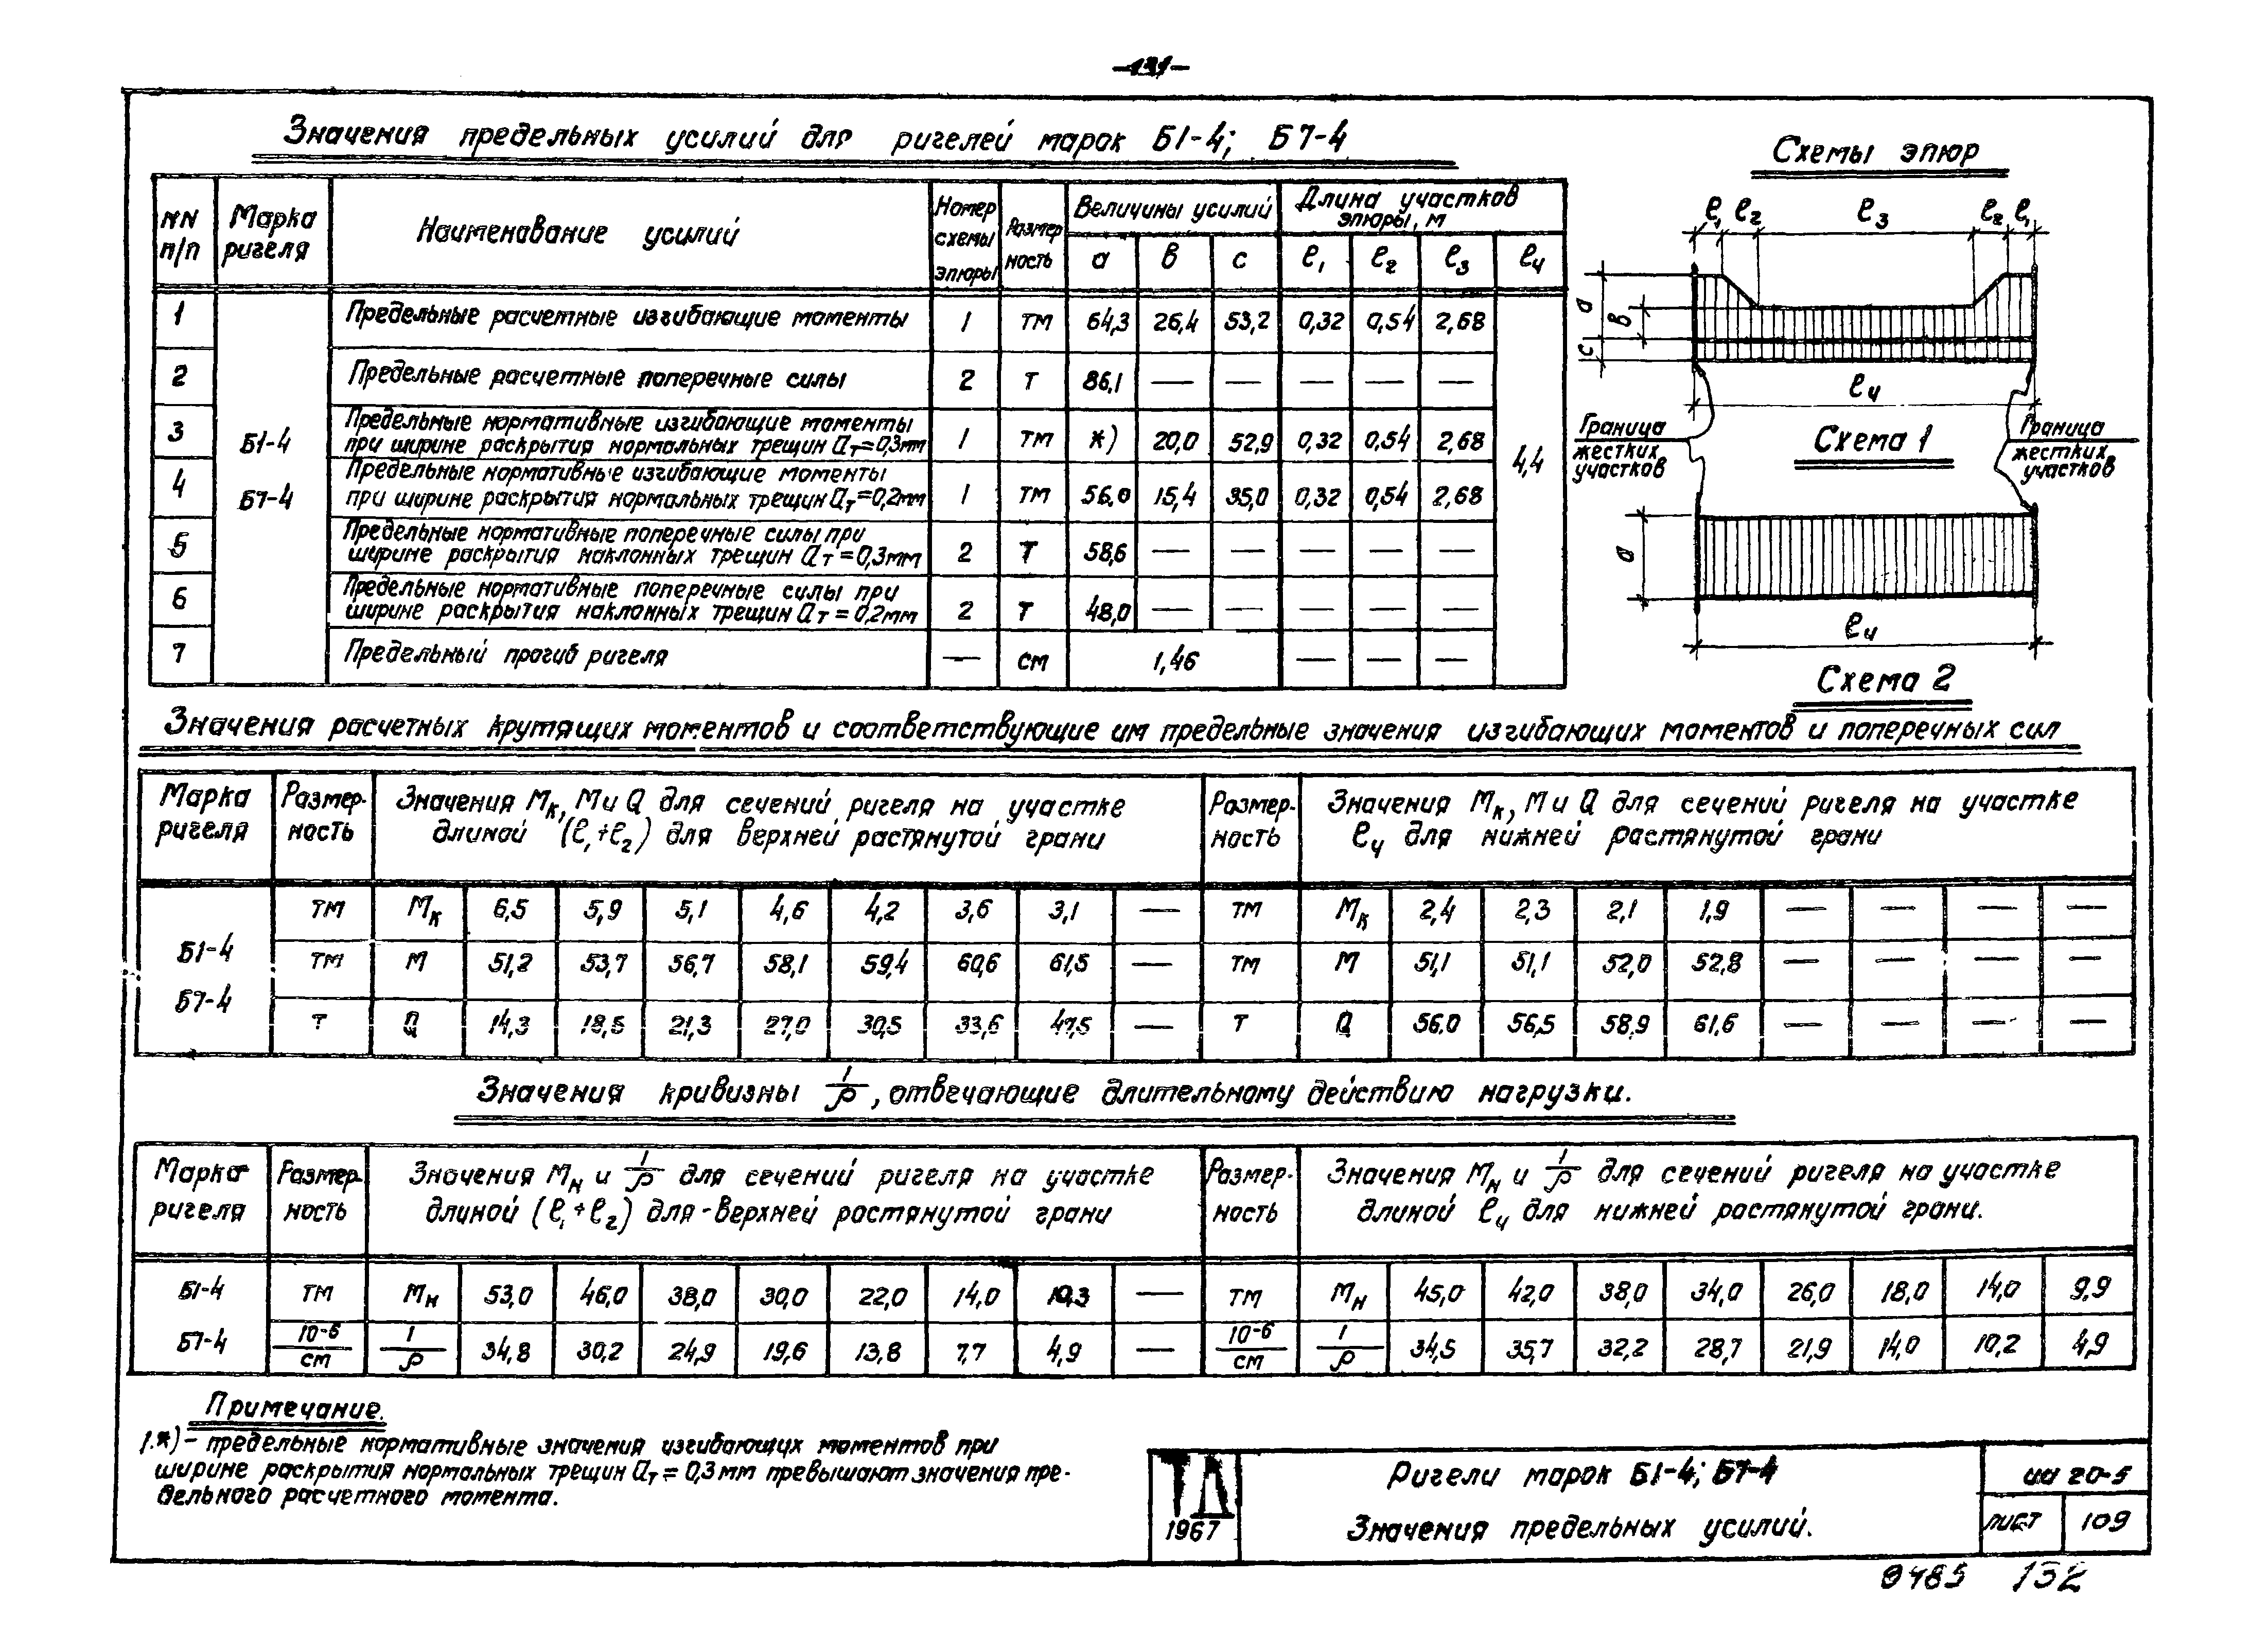 -131-
Значения предельных усилий для ригелей марок Б1-4; Б7-4
NN п/п | Марка ригеля | Наименование усилий | Номер схемы эпюры | Размерность | Величины усилий | Длина участков эпюры, м
a | в | с | ℓ₁ | ℓ₂ | ℓ₃ | ℓ₄
Б1-4
Б7-4
1 | Предельные расчетные изгибающие моменты | 1 | тм | 64,3 | 26,4 | 53,2 | 0,32 | 0,54 | 2,68
2 | Предельные расчетные поперечные силы | 2 | т | 86,1 | — | — | — | — | —
3 | Предельные нормативные изгибающие моменты
при ширине раскрытия нормальных трещин aт=0,3мм | 1 | тм | *) | 20,0 | 52,9 | 0,32 | 0,54 | 2,68
4,4
4 | Предельные нормативные изгибающие моменты
при ширине раскрытия нормальных трещин aт=0,2мм | 1 | тм | 56,0 | 15,4 | 35,0 | 0,32 | 0,54 | 2,68
5 | Предельные нормативные поперечные силы при
ширине раскрытия наклонных трещин aт=0,3мм | 2 | т | 58,6 | — | — | — | — | —
6 | Предельные нормативные поперечные силы при
ширине раскрытия наклонных трещин aт=0,2мм | 2 | т | 48,0 | — | — | — | — | —
7 | Предельный прогиб ригеля | — | см | 1,46 | — | — | —
Схемы эпюр
ℓ₁ ℓ₂ ℓ₃ ℓ₂ ℓ₁
a
в
с
ℓ₄
Граница
жестких
участков
Схема 1
Граница
жестких
участков
a
ℓ₄
Схема 2
Значения расчетных крутящих моментов и соответствующие им предельные значения изгибающих моментов и поперечных сил
Марка ригеля | Размерность | Значения Mк, M и Q для сечений ригеля на участке
длиной (ℓ₁+ℓ₂) для верхней растянутой грани | Размерность | Значения Mк, M и Q для сечений ригеля на участке
ℓ₄ для нижней растянутой грани
Б1-4
Б7-4
тм | Mк | 6,5 | 5,9 | 5,1 | 4,6 | 4,2 | 3,6 | 3,1 | — | тм | Mк | 2,4 | 2,3 | 2,1 | 1,9 | — | — | — | —
тм | M | 51,2 | 53,7 | 56,7 | 58,1 | 59,4 | 60,6 | 61,5 | — | тм | M | 51,1 | 51,1 | 52,0 | 52,8 | — | — | — | —
т | Q | 14,3 | 18,5 | 21,3 | 27,0 | 30,5 | 33,6 | 47,5 | — | т | Q | 56,0 | 56,5 | 58,9 | 61,6 | — | — | — | —
Значения кривизны 1/ρ, отвечающие длительному действию нагрузки.
Марка ригеля | Размерность | Значения Mн и 1/ρ для сечений ригеля на участке
длиной (ℓ₁+ℓ₂) для верхней растянутой грани | Размерность | Значения Mн и 1/ρ для сечений ригеля на участке
длиной ℓ₄ для нижней растянутой грани.
Б1-4 | тм | Mн | 53,0 | 46,0 | 38,0 | 30,0 | 22,0 | 14,0 | 10,3 | — | тм | Mн | 45,0 | 42,0 | 38,0 | 34,0 | 26,0 | 18,0 | 14,0 | 9,9
Б7-4 | 10-6/см | 1/ρ | 34,8 | 30,2 | 24,9 | 19,6 | 13,8 | 7,7 | 4,9 | — | 10-6/см | 1/ρ | 34,5 | 35,7 | 32,2 | 28,7 | 21,9 | 14,0 | 10,2 | 4,9
Примечание.
1.*) – предельные нормативные значения изгибающих моментов при
ширине раскрытия нормальных трещин aт = 0,3мм превышают значения пре-
дельного расчетного момента.
ТД
1967
Ригели марок Б1-4; Б7-4
Значения предельных усилий.
ИИ 20-5
лист 109
8485 132